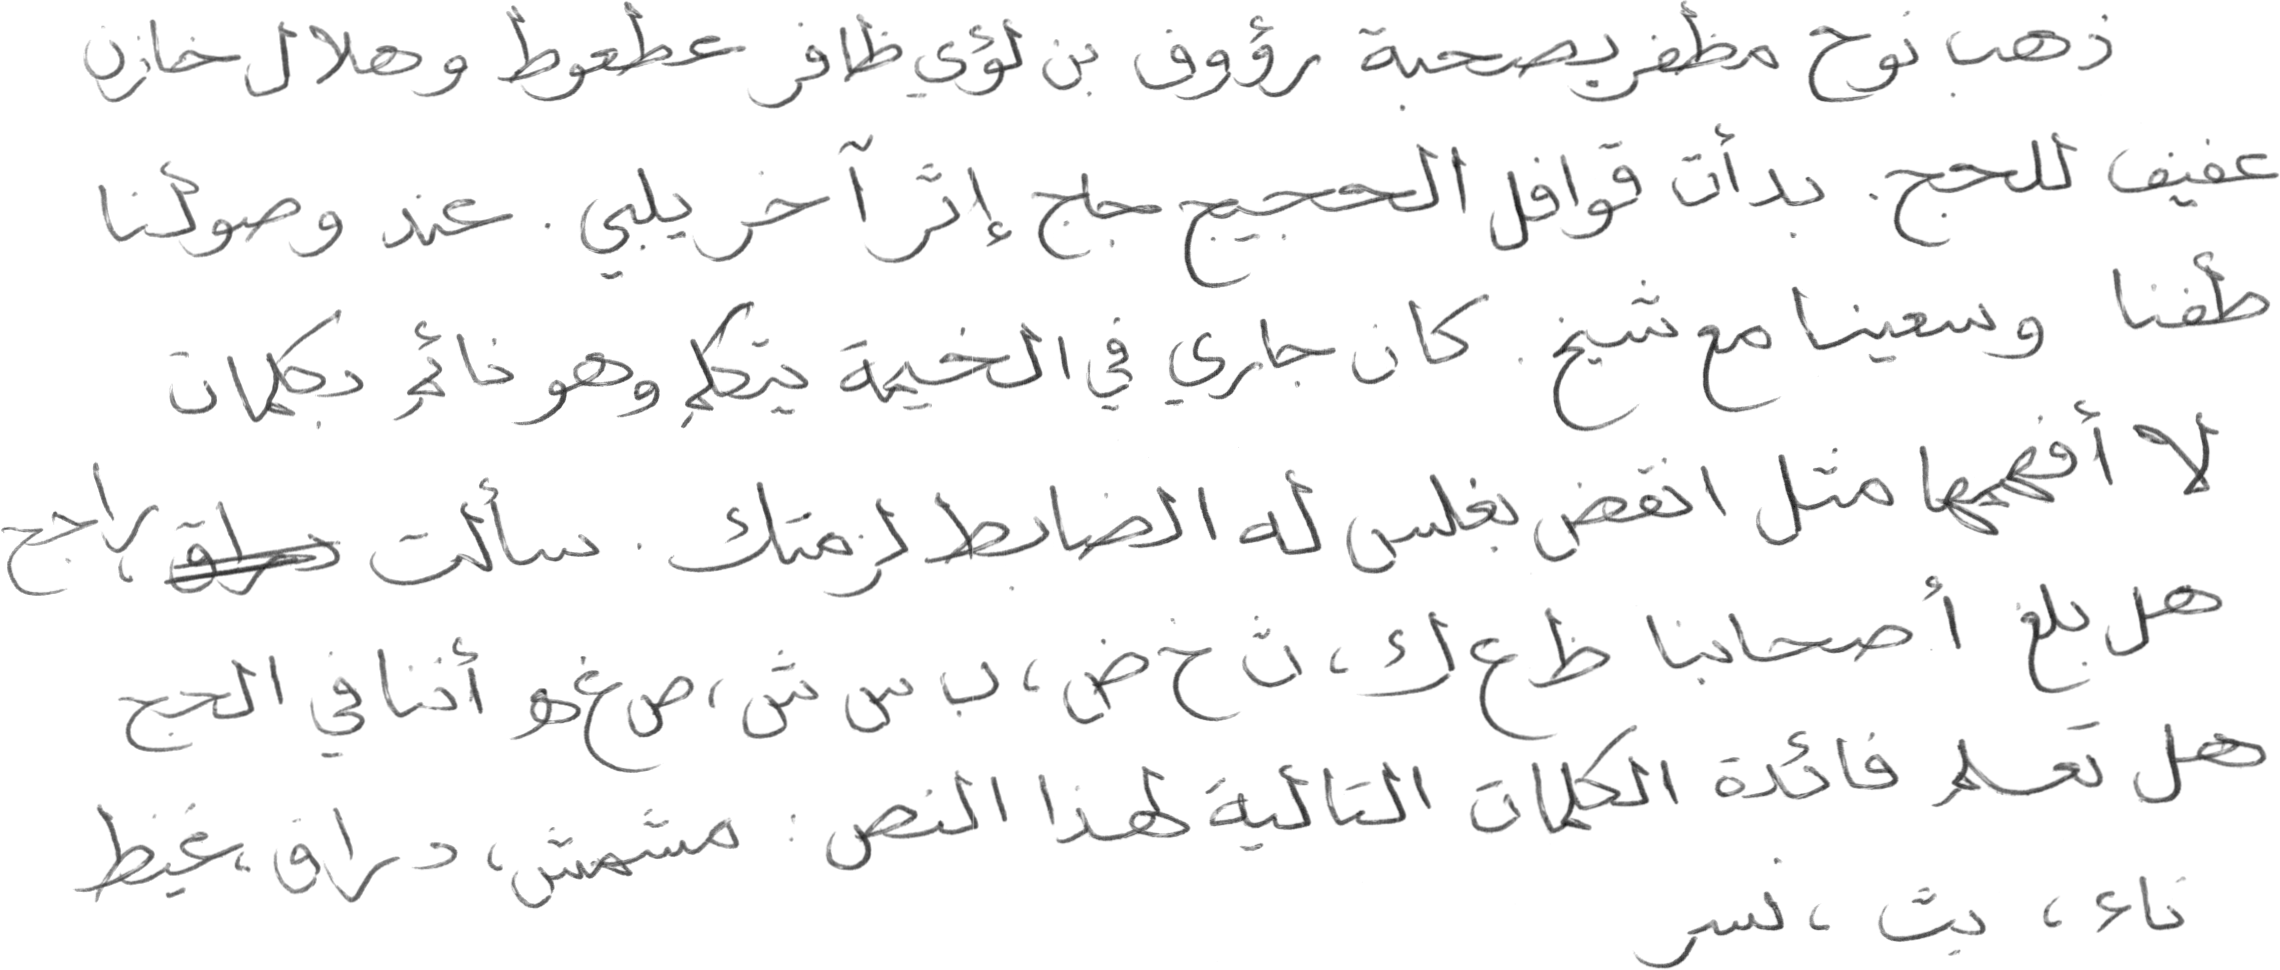 ذهب نوح مظفر بصحبة رؤوف بن لؤي ظافر عطعوط وهلال خازن
عفيف للحج. بدأت قوافل الحجيج حاج إثر آخر يلبي. عند وصولنا
طفنا وسعينا مع شيخ. كان جاري في الخيمة يتكلم وهو نائم بكلمات
لا أفهمها مثل انقض بغلس له الضابط لزمتك. سألت راجح
هل بلغ أصحابنا ظ ع ك، ث خ ض، ب س ش، ص غ هـ أننا في الحج
هل تعلم فائدة الكلمات التالية لهذا النص: مشمش، دراق، غيظ
ناء، بث، نسر